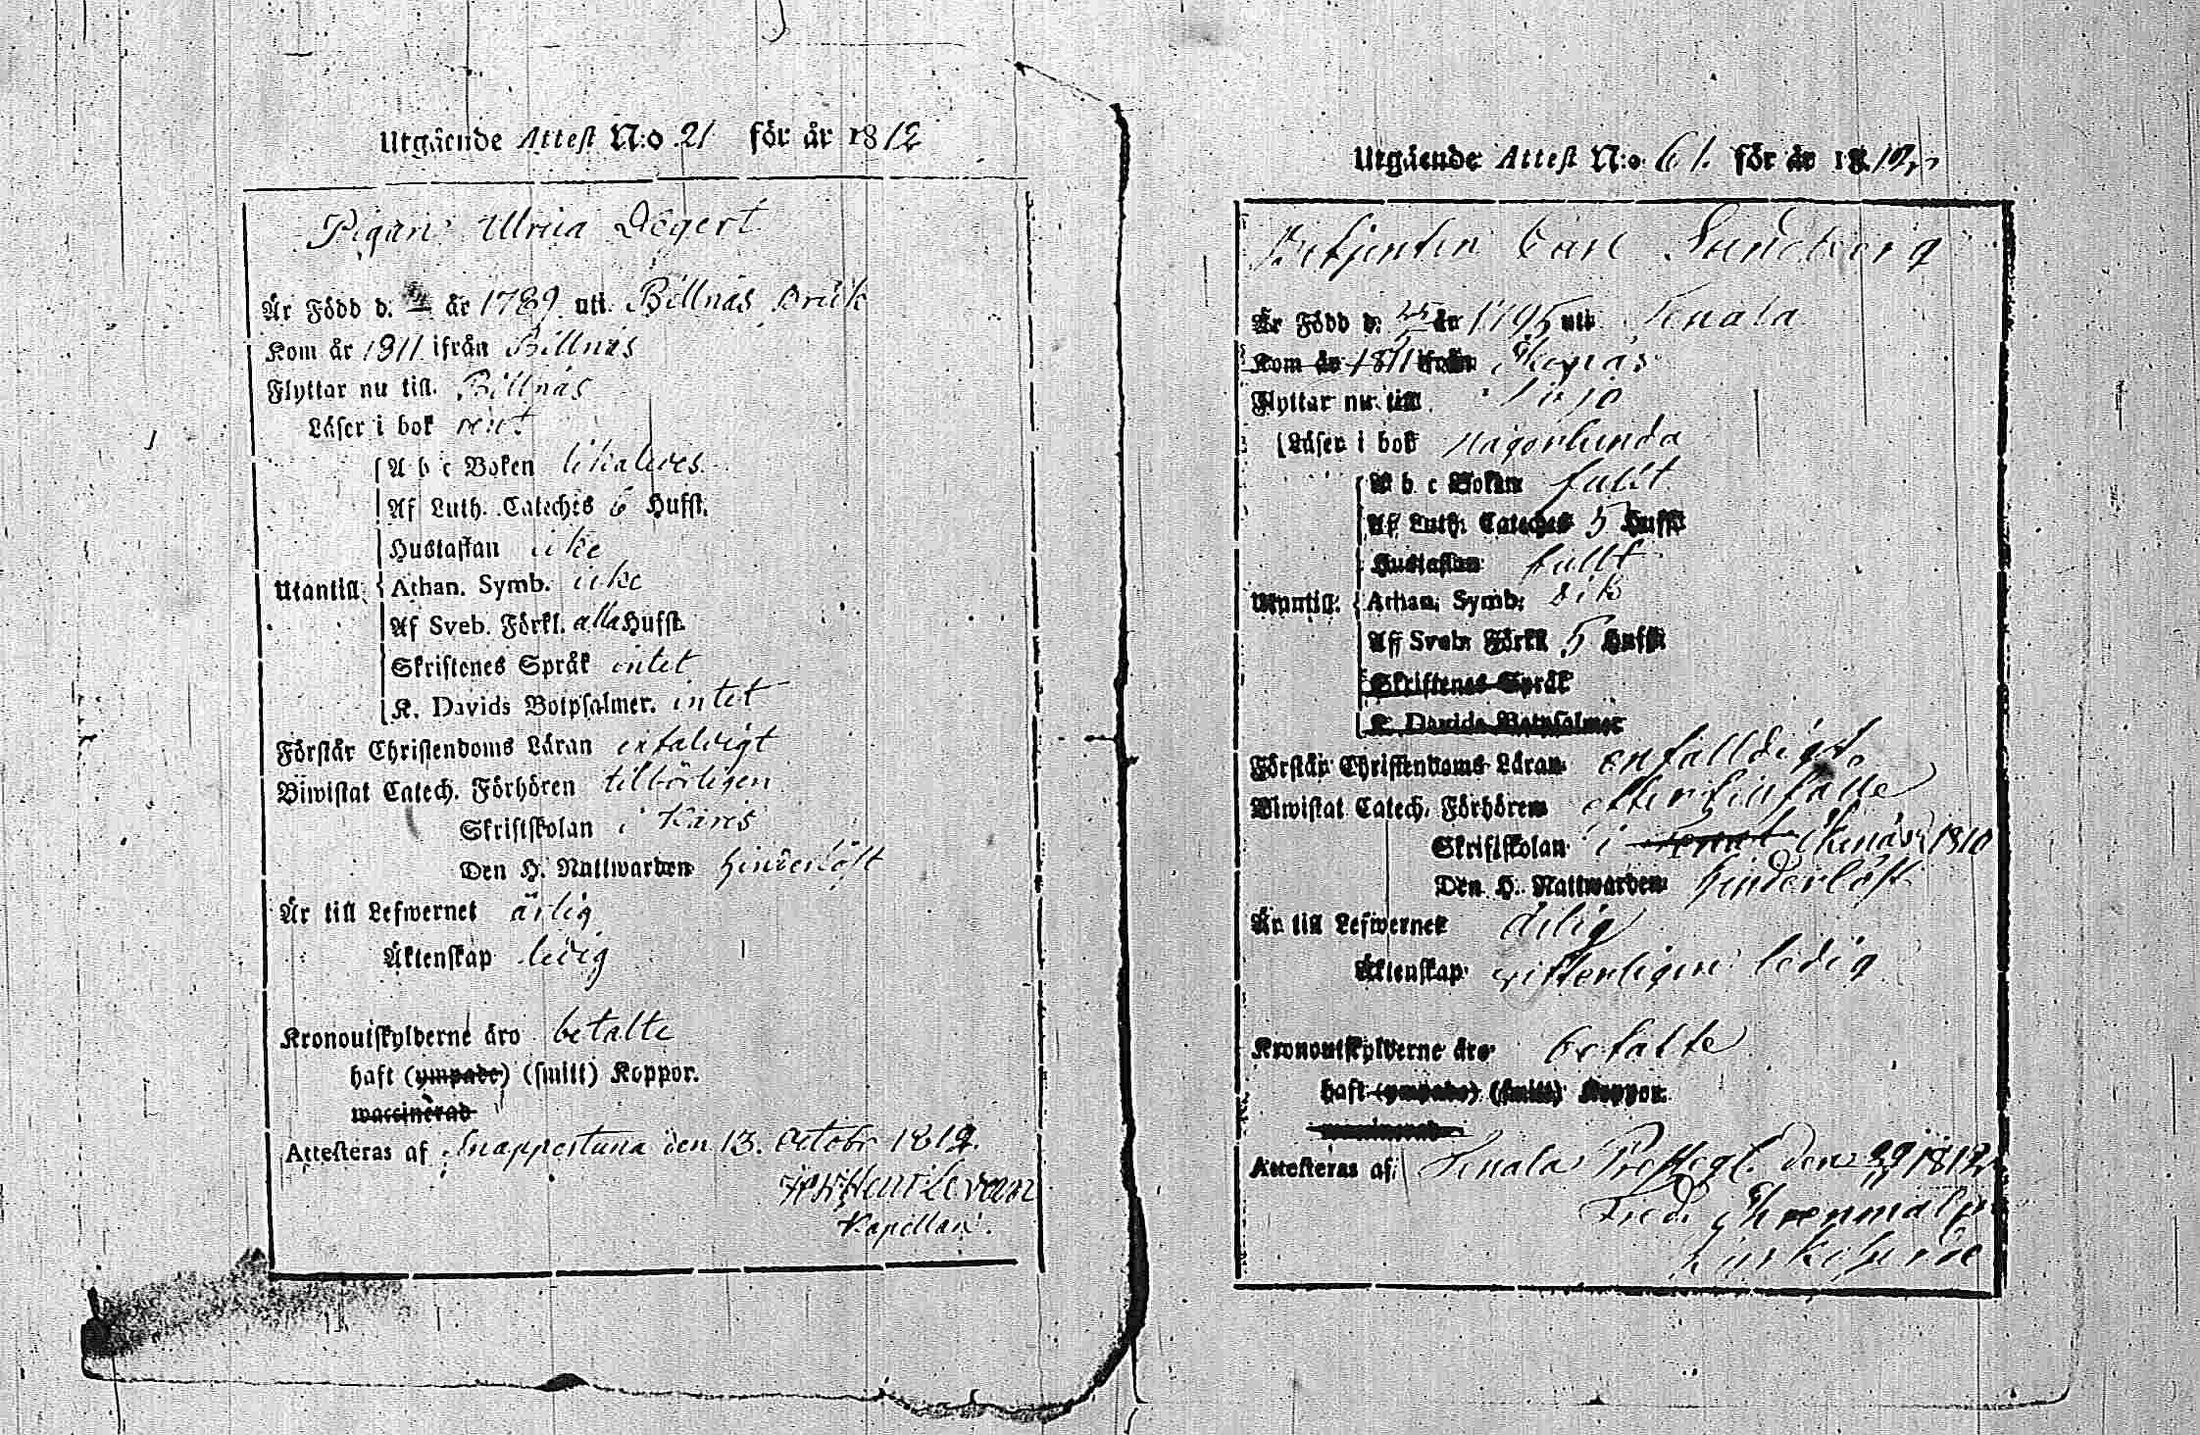 Utgående Attest N:o 21 för år 1812
Pigan Ulrica Degert
Är Född d. år 1789 uti Billnäs Bruk
Kom år 1811 ifrån Billnäs
Flyttar nu till Billnäs
Läser i bok rent
A b c Boken likaledes
Af Luth. Cateches 6 Hufst.
Hustaflan icke
Utantill: Athan. Symb. icke
Af Sveb. Förkl. alla Hufst.
Skriftenes Språk intet
K. Davids Botpsalmer. intet
Förstår Christendoms Läran enfaldigt
Biwistat Catech. Förhören tilbörligen
Skriftskolan i Karis
Den H. Nattwarden hinderlöst
Är till Lefwernet ärlig
Äktenskap ledig
Kronoutskylderne äro betalte
haft (ympade) (smitt) Koppor.
waccinerad
Attesteras af Snappertuna den 13. October 1812.
Kapellan.
Utgående Attest N:o 61. för år 1812
Betjenten Carl Sundberg
Är Född d. år 1795 uti Tenala
Kom år 1811 ifrån Ekenäs
Flyttar nu till Lojo
Läser i bok någorlunda
A b c Boken fullt
Af Luth. Cateches 5 Hufst
Hustaflan fullt
Utantill: Athan. Symb.
Af Sveb. Förkl 5 Hufst.
Skriftenes Språk
K. Davids Botpsalmer
Förstår Christendoms Läran enfalldigt
Biwistat Catech. Förhören
Skriftskolan i Ekenäs 1810
Den H. Nattwarden hinderlöst
Är till Lefwernet ärlig
Äktenskap ledig
Kronoutskylderne äro betalte
haft (ympade) (smitt) Koppor.
Attesteras af Tenala Prestegl. den 1812
Fred. Ehrenmalm
Kyrkoherde